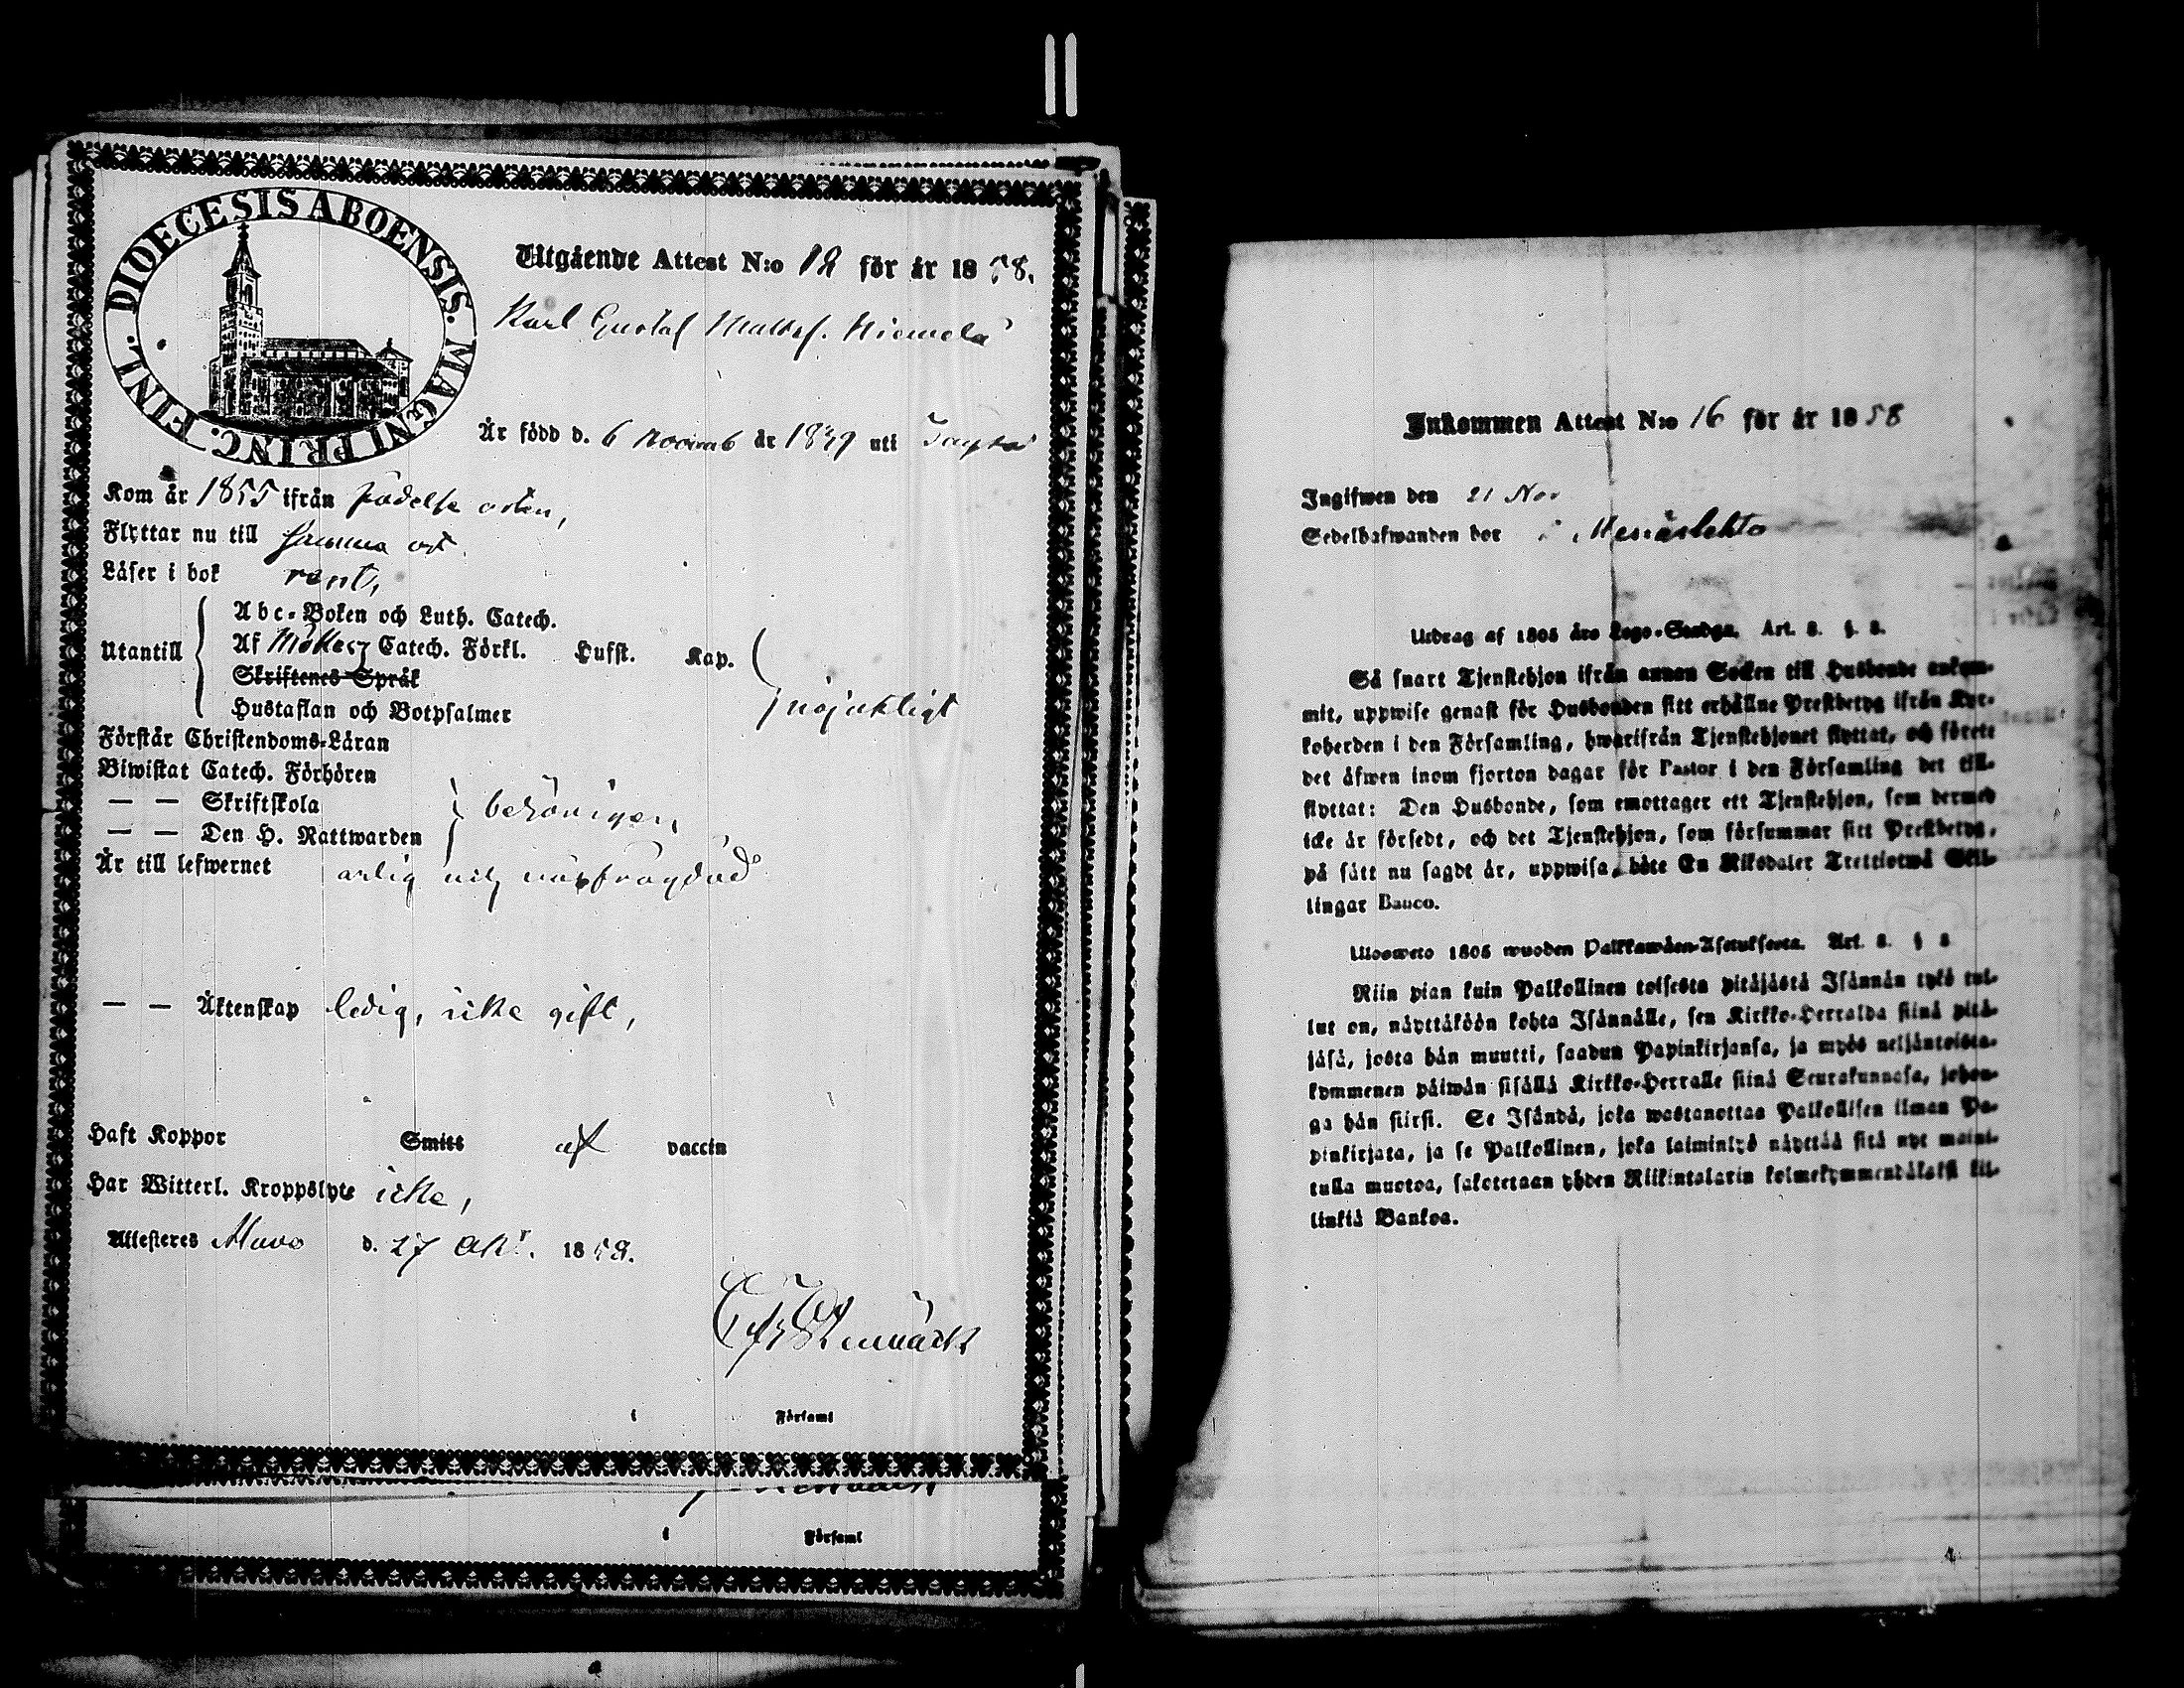 DIOECESIS ABOENSIS. MAGNI PRINC. FINL.
Utgående Attest N:o 12 för år 1858.
Karl Gustaf Mattsf. Niemelä
Är född d. 6 Novemb år 1839 uti
Kom år 1855 ifrån födelse orten,
Flyttar nu till samma ort.
Läser i bok rent,
Utantill
Abc-Boken och Luth. Catech.
Af Möllers Catech. Förkl. Hufst. Kap.
Skriftenes Språk
Hustaflan och Botpsalmer
nöjaktligt
Förstår Christendoms-Läran
Biwistat Catech. Förhören
— — Skriftskola
— — Den H. Nattwarden
behörigen,
Är till lefwernet ärlig och
— — Äktenskap ledig, icke gift,
Haft Koppor Smitt af vaccin
Har Witterl. Kroppslyte icke,
Attesteres d. 27 Okt. 1858.
i Församl
i Församl
Inkommen Attest N:o 16 för år 1858
Ingifwen den 21 Nov
Sedelhafwanden bor i
Utdrag af 1805 års Lego-Stadga. Art. 8. §. 8.
Så snart Tjenstehjon ifrån annan Socken till Husbonde ankom-
mit, uppwise genast för Husbonden sitt erhållne Prestbetyg ifrån Kyr-
koherden i den Församling, hwarifrån Tjenstehjonet flyttat, och förete
det äfwen inom fjorton dagar för Pastor i den Församling det till-
flyttat: Den Husbonde, som emottager ett Tjenstehjon, som dermed
icke är försedt, och det Tjenstehjon, som försummar sitt Prestbetyg,
på sätt nu sagdt är, uppwisa, böte En Riksdaler Trettiotwå Skil-
lingar Banco.
Ulosweto 1805 wuoden Palkkawäen-Asetuksesta. Art. 8. § 8
Niin pian kuin Palkollinen toisesta pitäjästä Isännän tykö tul-
lut on, näyttäköön kohta Isännälle, sen Kirkko-Herralda siinä pitä-
jäsä, josta hän muutti, saadun Papinkirjansa, ja myös neljäntoista-
kymmenen päiwän sisällä Kirkko-Herralle siinä Seurakunnasa, johon-
ga hän siirsi. Se Isändä, joka wastanottaa Palkollisen ilman Pa-
pinkirjata, ja se Palkollinen, joka laiminlyö näyttää sitä nyt maini-
tulla muotoa, sakotetaan yhden Riikintalarin kolmekymmendäkaksi kil-
linkiä Bankoa.